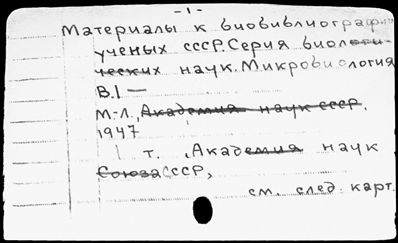 -1-
Материалы к биобиблиографии
ученых СССР. Серия биологи-
ческих наук. Микробиология
В.1 —
М.-Л., Академия наук СССР,
1947
1 т. , Академия наук
Союза ССР,
см. след. карт.